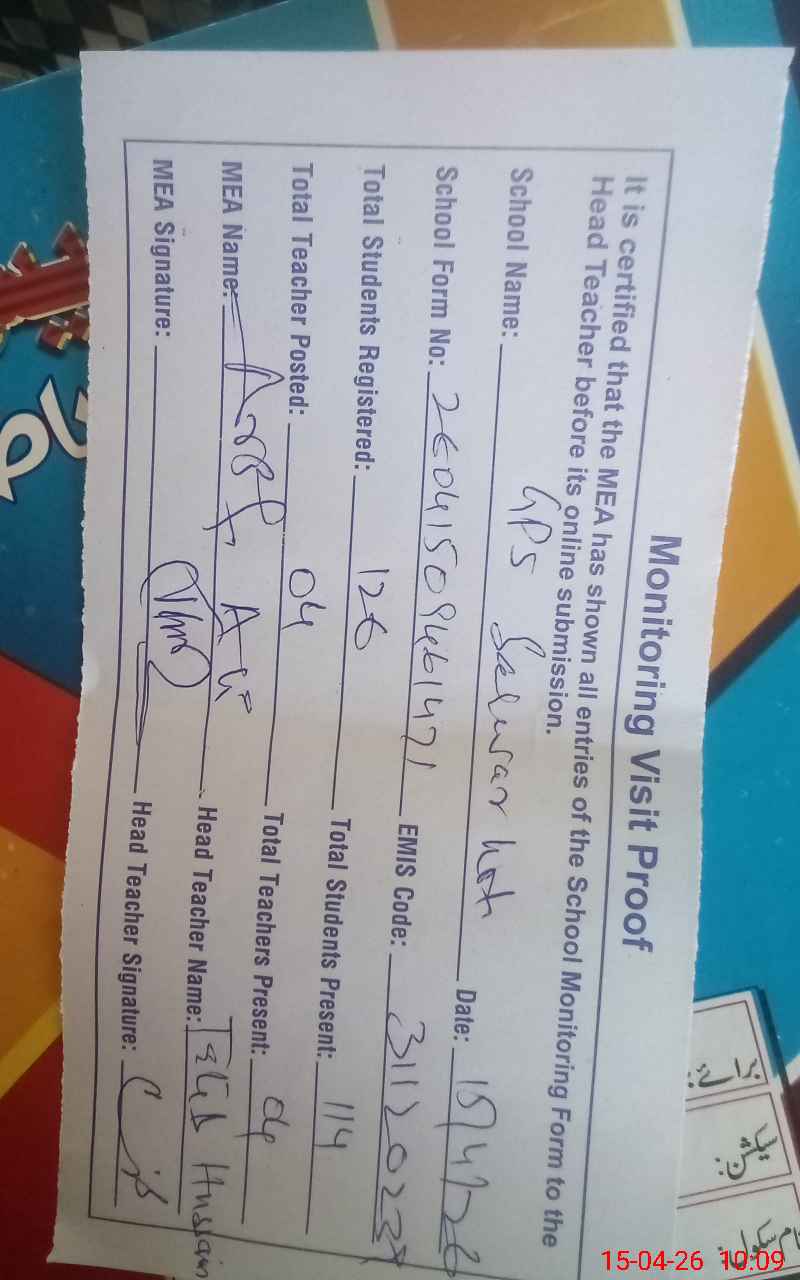 Monitoring Visit Proof
It is certified that the MEA has shown all entries of the School Monitoring Form to the
Head Teacher before its online submission.
School Name: GPS Date: 15/4/26
School Form No: 26041509461471 EMIS Code:
Total Students Registered: 126 Total Students Present: 114
Total Teacher Posted: 04 Total Teachers Present: 04
MEA Name: Ali Head Teacher Name: Hussain
MEA Signature: Head Teacher Signature:
15-04-26 10:09